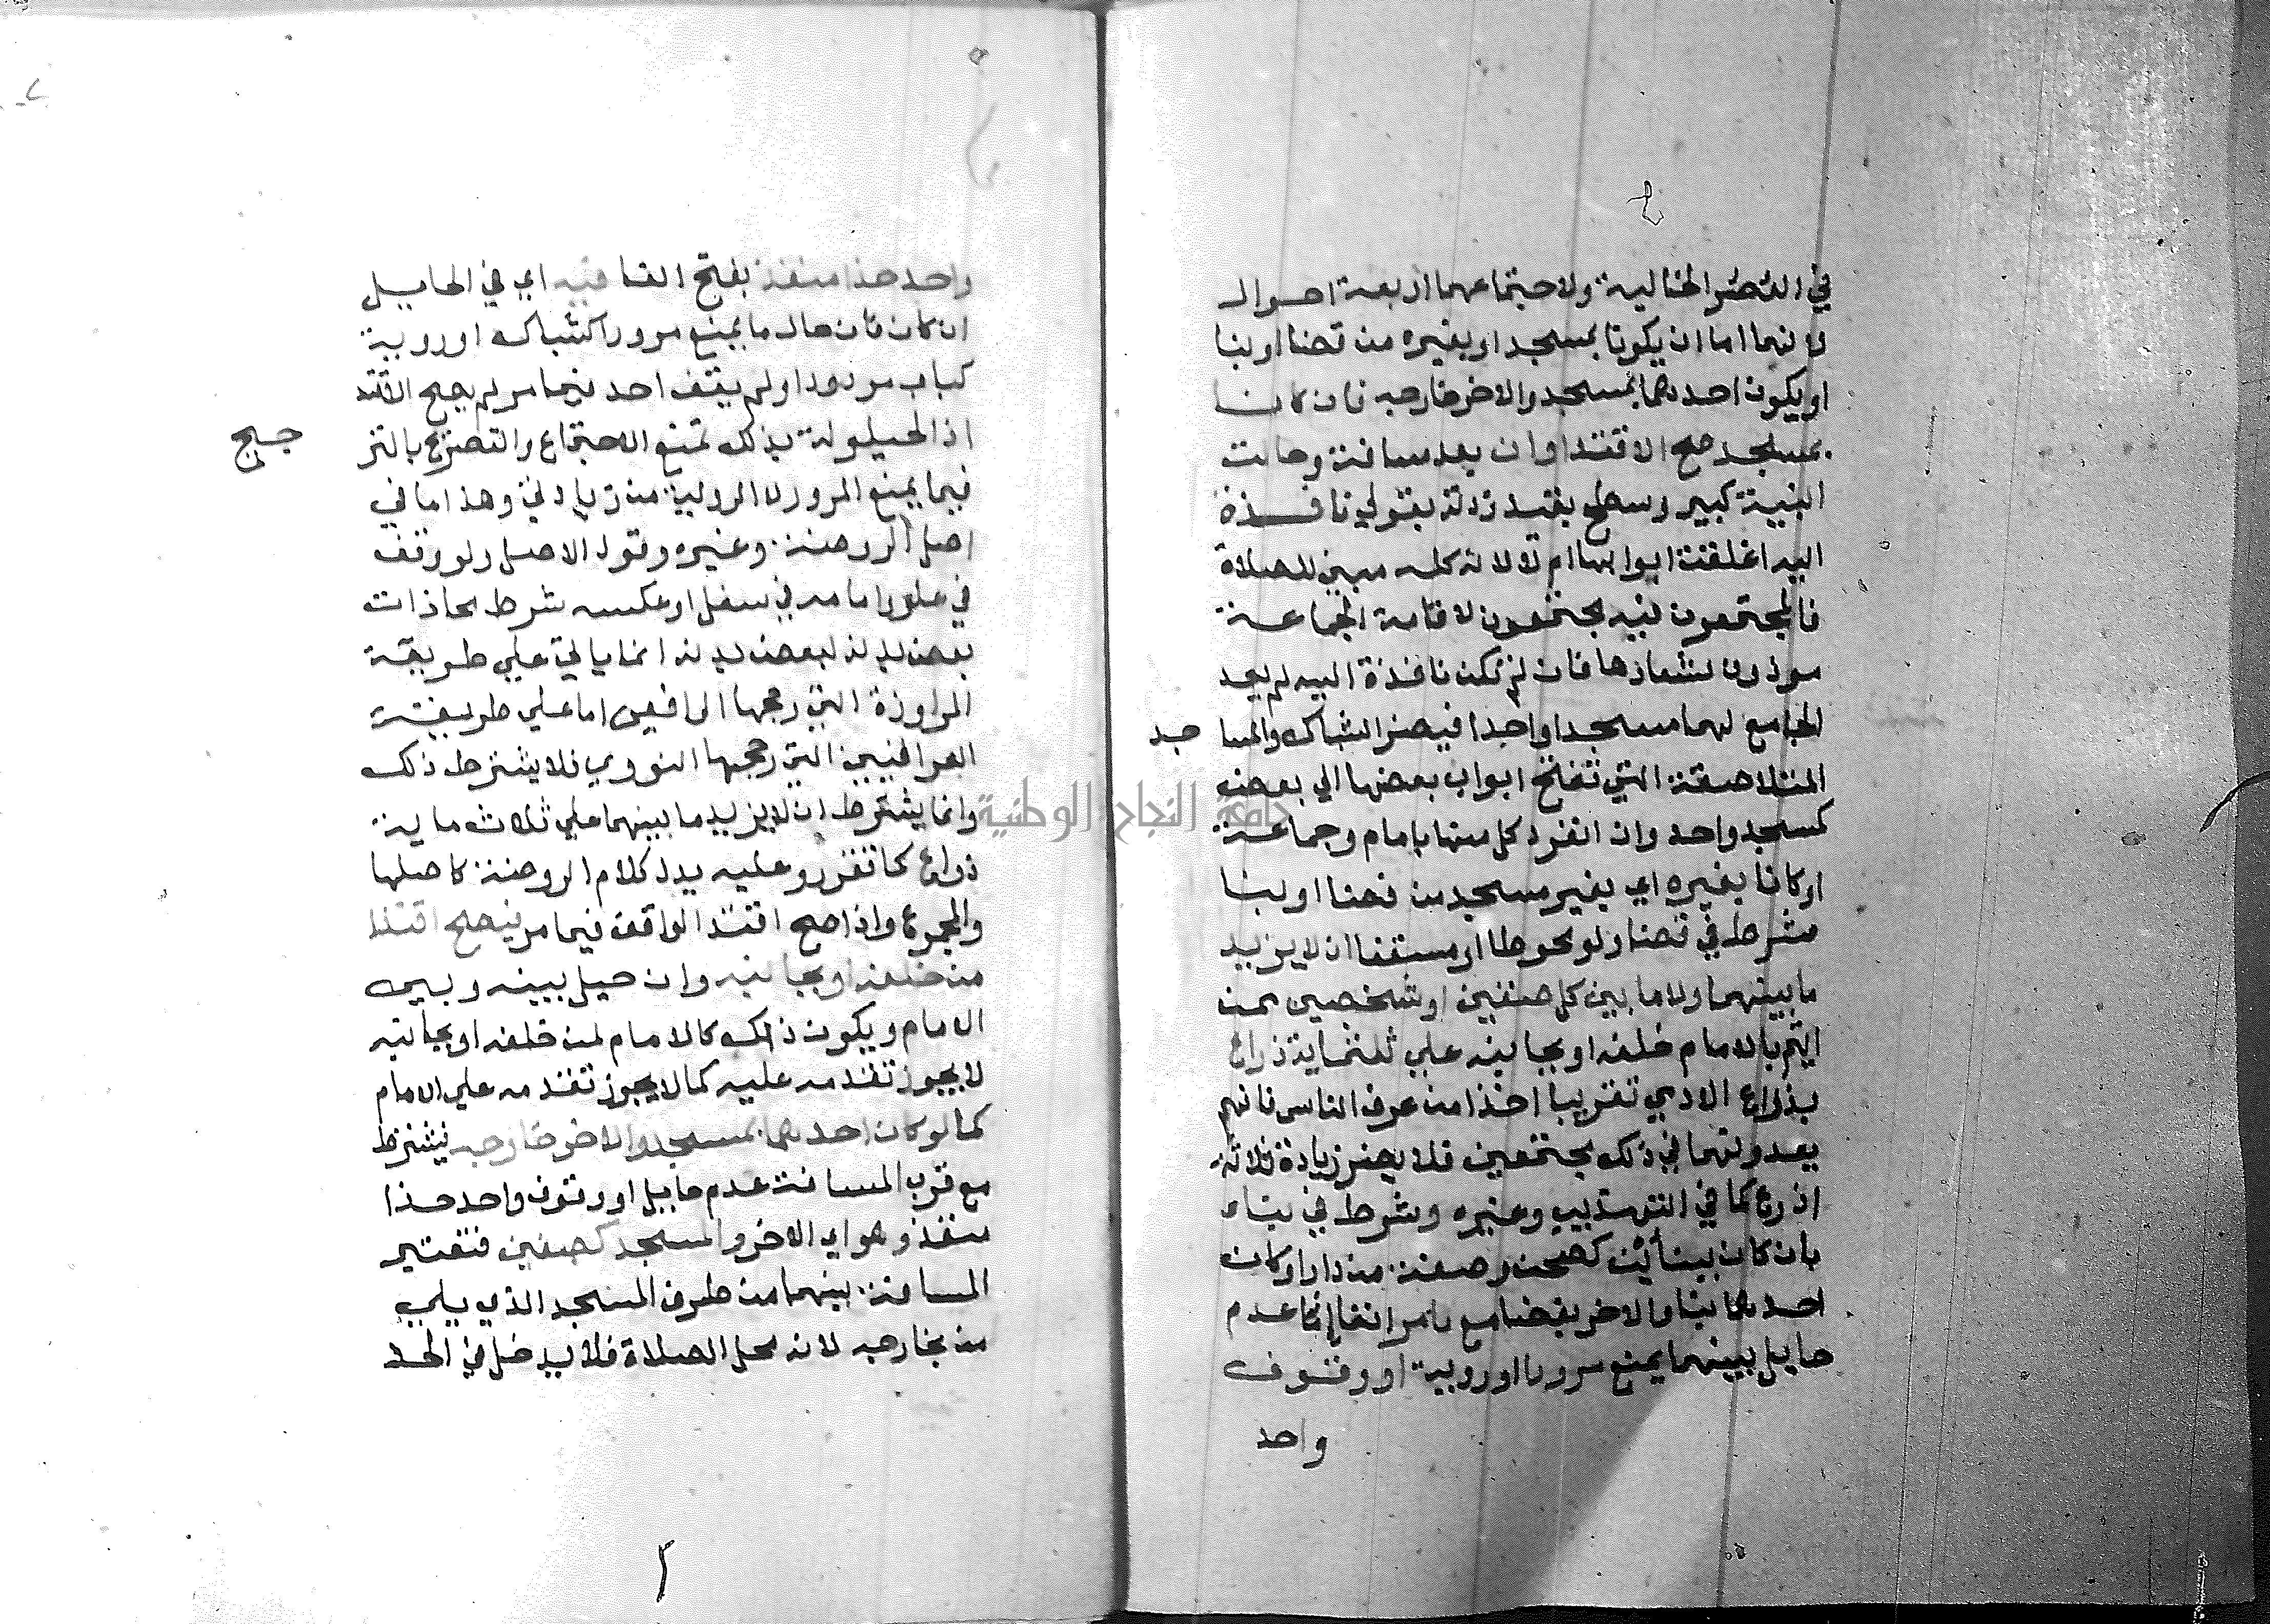 في العصر الخالية ولاجتماعهما اربعة احوال
لانهما اما ان يكونا بمسجد او بغيره من فضا او بنا
او يكون احدهما بمسجد والاخر خارجه فان كانا
بمسجد صح الاقتدا وان بعد مسافة وحالت
ابنية كبير وسطح بقيد زدته بقولي نافذة
اليه اغلقت ابوابها ام لا لانه كله مبني للصلاة
فالمجتمعون فيه مجتمعون لاقامة الجماعة
مودون لشعارها فان لم تكن نافذة اليه لم يعد
الجامع لهما مسجدا واحدا فيضر الشباك والمسا جد
المتلاصقة التي تفتح ابواب بعضها الي بعض
كمسجد واحد وان انفرد كل منها بامام وجماعة
او كانا بغيره اي بغير مسجد من فضا او بنا
شرط في فضا ولو محوطا او مسقفا ان لا يزيد
ما بينهما ولا ما بين كل صفين او شخصين ممن
ايتم بالامام خلفه او بجانبه علي ثلثماية ذراع
بذراع الادمي تقريبا اخذا من عرف الناس فانهم
يعدونهما في ذلك مجتمعين فلا يضر زيادة ثلاثة
اذرع كما في التهذيب وغيره وشرط في بناء
بان كانا ببنأين كصحن وصفة من دار او كان
احدهما ببنا والاخر بفضا مع ما مر انفا اما عدم
حايل بينهما يمنع مرورا او روية او وقوف
واحد
واحد حذا منفذ بفتح الفا فيه اي في الحايل
ان كان فان حال ما يمنع مرورا كشباك او روية
كباب مردود او لم يقف احد فيما مر لم يصح الاقتد
اذ الحيلولة بذلك تمنع الاجتماع والتصريح بالتر جيح
فيما يمنع المرور لا الروية من زيادتي وهذا ما في
اصل الروضة وغيره وقول الاصل ولو وقف
في علو وامامه في سفل او عكسه شرط محاذات
بعض بدنه لبعض بدنه انما ياتي علي طريقة
المراوزة التي رجحها الرافعي اما علي طريقة
العراقيين التي رجحها النووي فلا يشترط ذلك
وانما يشترط ان لا يزيد ما بينهما علي ثلاث ماية
ذراع كما تقرر وعليه يدل كلام الروضة كاصلها
والمجموع واذا صح اقتدا الواقف فيما مر فيصح اقتدا
من خلفه او بجانبه وان حيل بينه وبين
الامام ويكون ذلك كالامام لمن خلفه او بجانبه
لا يجوز تقدمه عليه كما لا يجوز تقدمه علي الامام
كما لو كان احدهما بمسجد والاخر خارجه فيشترط
مع قرب المسافة عدم حايل او وقوف واحد حذا
منفذ وهو اي الاخر والمسجد كصفين فتعتبر
المسافة بينهما من طرف المسجد الذي يلي
من بخارجه لانه محل الصلاة فلا يدخل في الحد
جامعة النجاح الوطنية